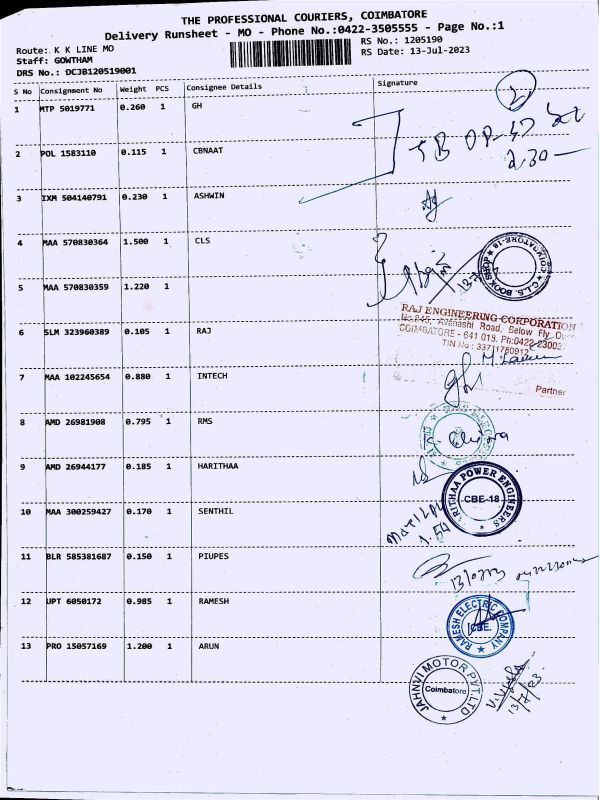 THE PROFESSIONAL COURIERS, COIMBATORE
Delivery Runsheet - MO - Phone No.:0422-3505555 - Page No.:1
Route: K K LINE MO RS No.: 1205190
Staff: GOWTHAM RS Date: 13-Jul-2023
DRS No.: DCJB120519001
S No Consignment No Weight PCS Consignee Details Signature
1 MTP 5019771 0.260 1 GH
2
2 POL 1583110 0.115 1 CBNAAT
2.30
3 IXM 504140791 0.230 1 ASHWIN
4 MAA 570830364 1.500 1 CLS
C.L.S. BOOK SHOP ★ COIMBATORE-18 ★
5 MAA 570830359 1.220 1
RAJ ENGINEERING CORPORATION
Avanashi Road, Below Fly
COIMBATORE - 641 018. Ph:0422-
TIN No.: 33711780912
6 SLM 323960389 0.105 1 RAJ
7 MAA 102245654 0.880 1 INTECH
Partner
8 AMD 26981908 0.795 1 RMS
9 AMD 26944177 0.185 1 HARITHAA
RITHAA POWER ENGINEERS
CBE-18
10 MAA 300259427 0.170 1 SENTHIL
11 BLR 585381687 0.150 1 PIUPES
12 UPT 6050172 0.985 1 RAMESH
RAMESH ELECTRIC COMPANY ★
CBE.
13 PRO 15057169 1.200 1 ARUN
JAHNVI MOTOR PVT.LTD ★
Coimbatore
13/7/23